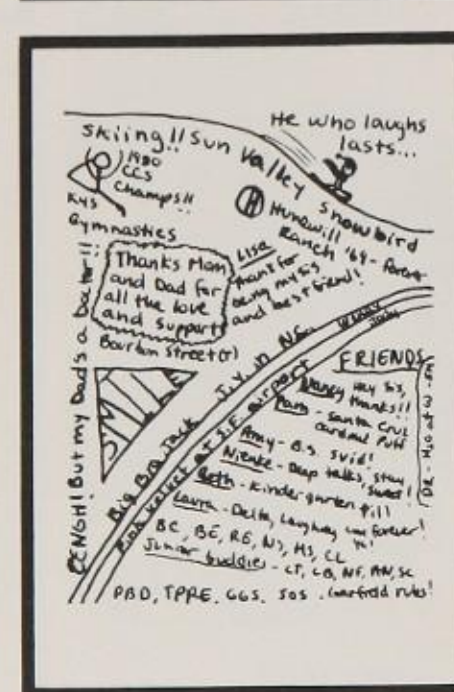 He who laughs
lasts...
Skiing!! Sun Valley Snowbird
1980
CCS
Champs!!
KHS
Gymnastics
Hunewill
Ranch '69 -
Thanks Mom
and Dad for
all the love
and support
Lisa
thanks for
being my sis
and best friend!
Bourbon Street(r)
CENGH! But my Dad's a Doctor!!
SMILE
Big Bro Jack J.Y. in NE
Pink velvet at S.F. airport
FRIENDS
Nancy hey sis,
thanks!!
Pam - Santa Cruz
Cardinal Puff
Amy - B.S. svid!
Nienke - Deep talks, stay
sweet!
Beth - Kindergarten pill
Laura - Delta, Laughing forever!
BC, BE, RE, NJ, HS, CL
Junior buddies - LT, LB, NF, AN, SC
PBD, TPRE, GGS, SOS, Garfield rules!